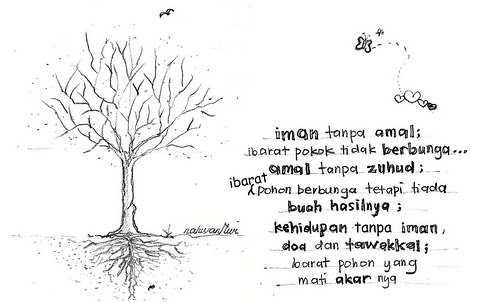 iman tanpa amal;
ibarat pokok tidak berbunga...
amal tanpa zuhud;
ibarat
pohon berbunga tetapi tiada
buah hasilnya;
kehidupan tanpa iman,
doa dan tawakkal;
ibarat pohon yang
mati akar nya